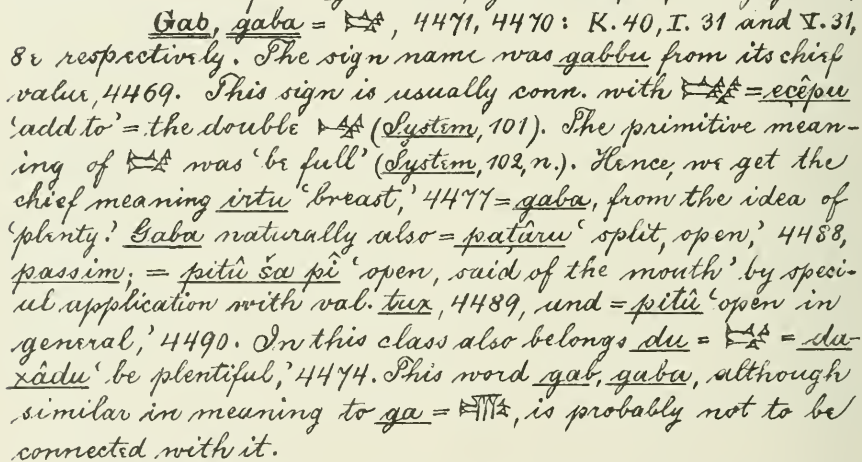 Gab, gaba = 𒃮, 4471, 4470: K. 40, I. 31 and V. 31,
8ε respectively. The sign name was gabbu from its chief
value, 4469. This sign is usually conn. with = eçêpu
'add to' = the double 𒃮 (System, 101). The primitive mean-
ing of 𒃮 was 'be full' (System, 102, n.). Hence, we get the
chief meaning irtu 'breast,' 4477 = gaba, from the idea of
'plenty.' Gaba naturally also = paṭâru 'split, open,' 4488,
passim; = pitû ša pî 'open, said of the mouth' by speci-
al application with val. tux, 4489, and = pitû 'open in
general,' 4490. In this class also belongs du = 𒃮 = da-
xâdu 'be plentiful,' 4474. This word gab, gaba, although
similar in meaning to ga = 𒂵, is probably not to be
connected with it.